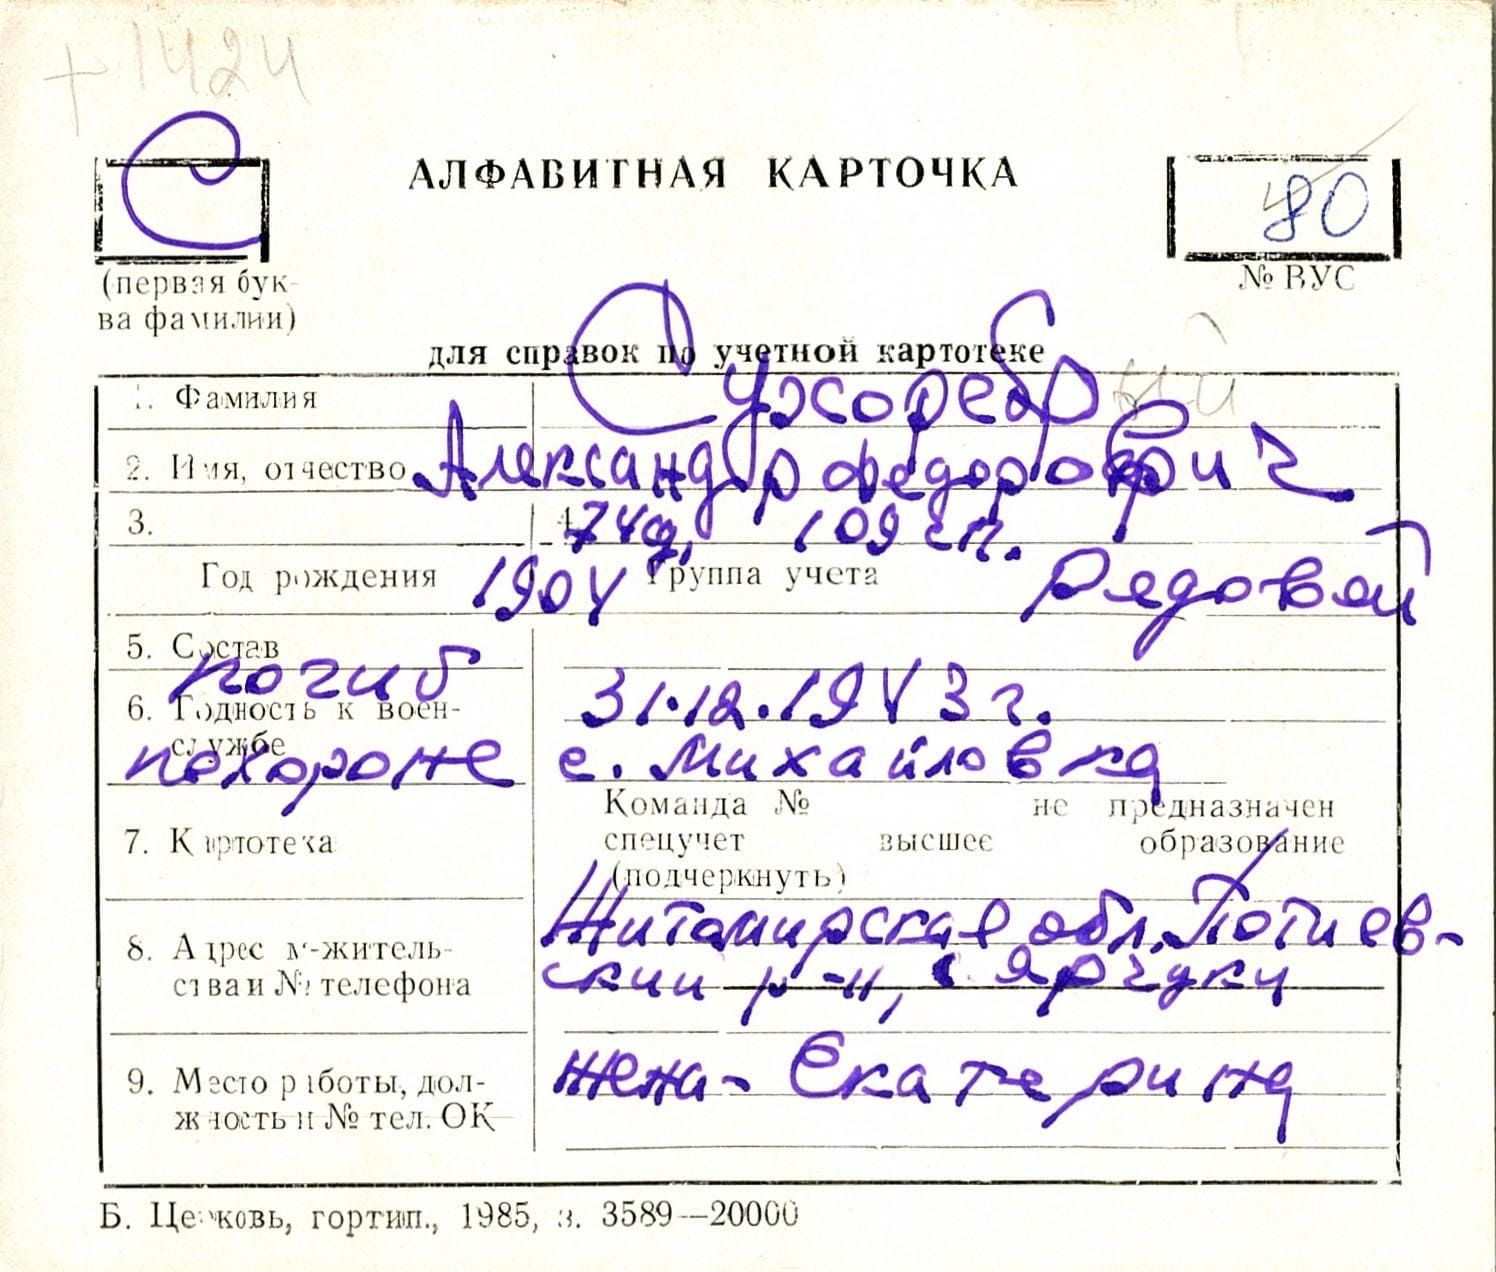 +1424
С
АЛФАВИТНАЯ КАРТОЧКА
80
(первая бук-
ва фамилии)
№ ВУС
для справок по учетной картотеке
1. Фамилия Сухоребрий
2. Имя, отчество Александр Федорович
3. 4. 74д, 109 сп.
Год рождения 1904 Группа учета Рядовой
5. Состав
погиб 31.12.1943 г.
6. Годность к воен-
службе
похороне с. Михайловка
Команда № не предназначен
7. Картотека спецучет высшее образование
(подчеркнуть)
Житомирская обл. Потиев-
8. Адрес м-житель-
ства и № телефона ский р-н, с Ярчуки
9. Место работы, дол-
жность и № тел. ОК жена - Екатерина
Б. Церковь, гортип., 1985, з. 3589—20000